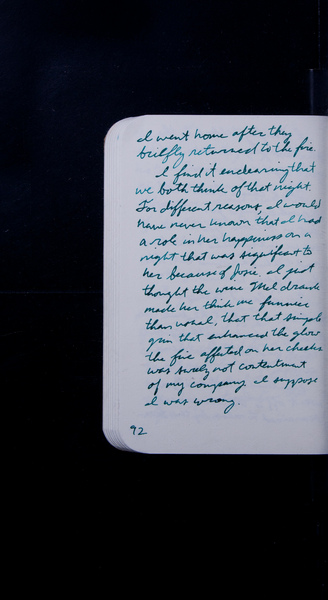 I went home after they
breifly returned to the fire.
I find it endearing that
we both think of that night.
For different reasons, I would
have never known that I had
a role in her happiness on a
night that was significant to
her because of Josie. I just
thought the wine Mel drank
made her think me funnier
than usual, that that simple
grin that enhanced the glow
the fire affected on her cheeks
was surely not contentment
of my company. I suppose
I was wrong.
92